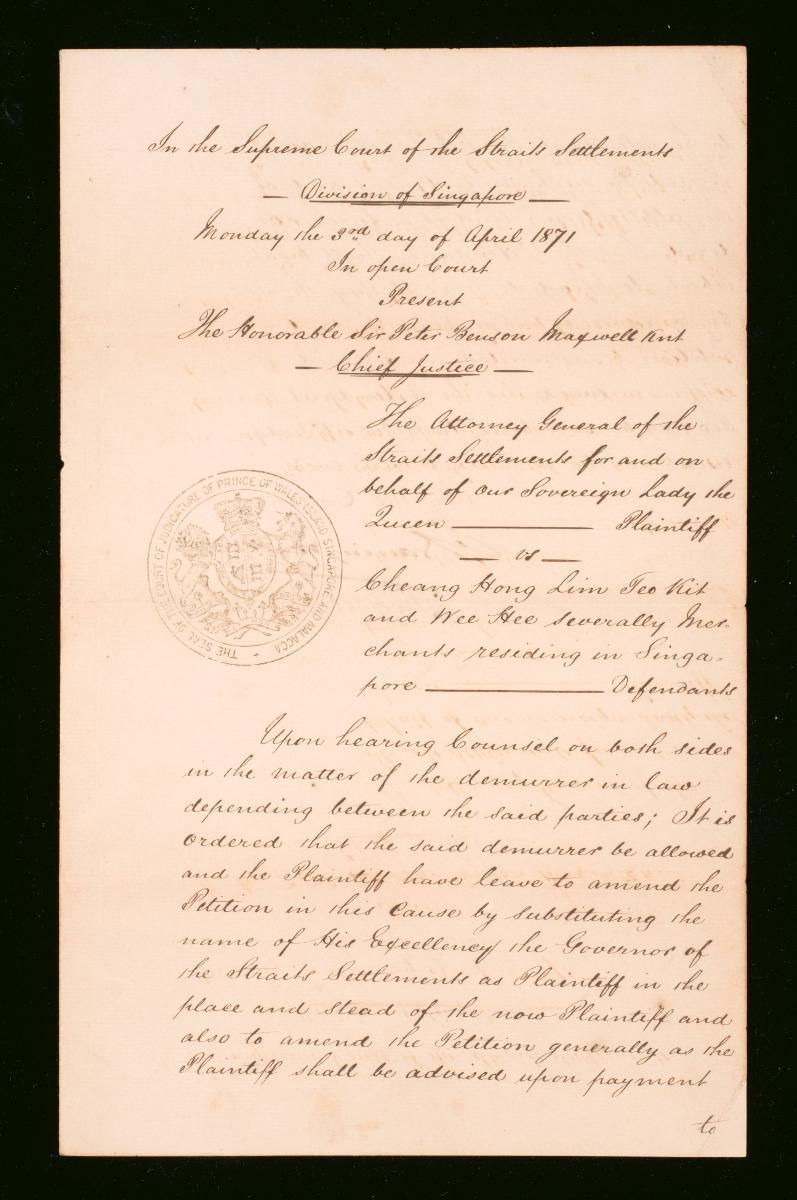 In the Supreme Court of the Straits Settlements
— Division of Singapore —
Monday the 3rd day of April 1871
In open Court
Present
The Honorable Sir Peter Benson Maxwell Knt
— Chief Justice —
The Attorney General of the
Straits Settlements for and on
behalf of our Sovereign Lady the
Queen — Plaintiff
— vs —
Cheang Hong Lim Teo Kit
and Wee Hee severally Mer-
chants residing in Singa-
pore — Defendants
THE SEAL OF THE COURT OF JUDICATURE OF PRINCE OF WALES ISLAND SINGAPORE AND MALACCA
Upon hearing Counsel on both sides
in the matter of the demurrer in law
depending between the said parties; It is
ordered that the said demurrer be allowed
and the Plaintiff have leave to amend the
Petition in this Cause by substituting the
name of His Excellency the Governor of
the Straits Settlements as Plaintiff in the
place and stead of the now Plaintiff and
also to amend the Petition generally as the
Plaintiff shall be advised upon payment
to